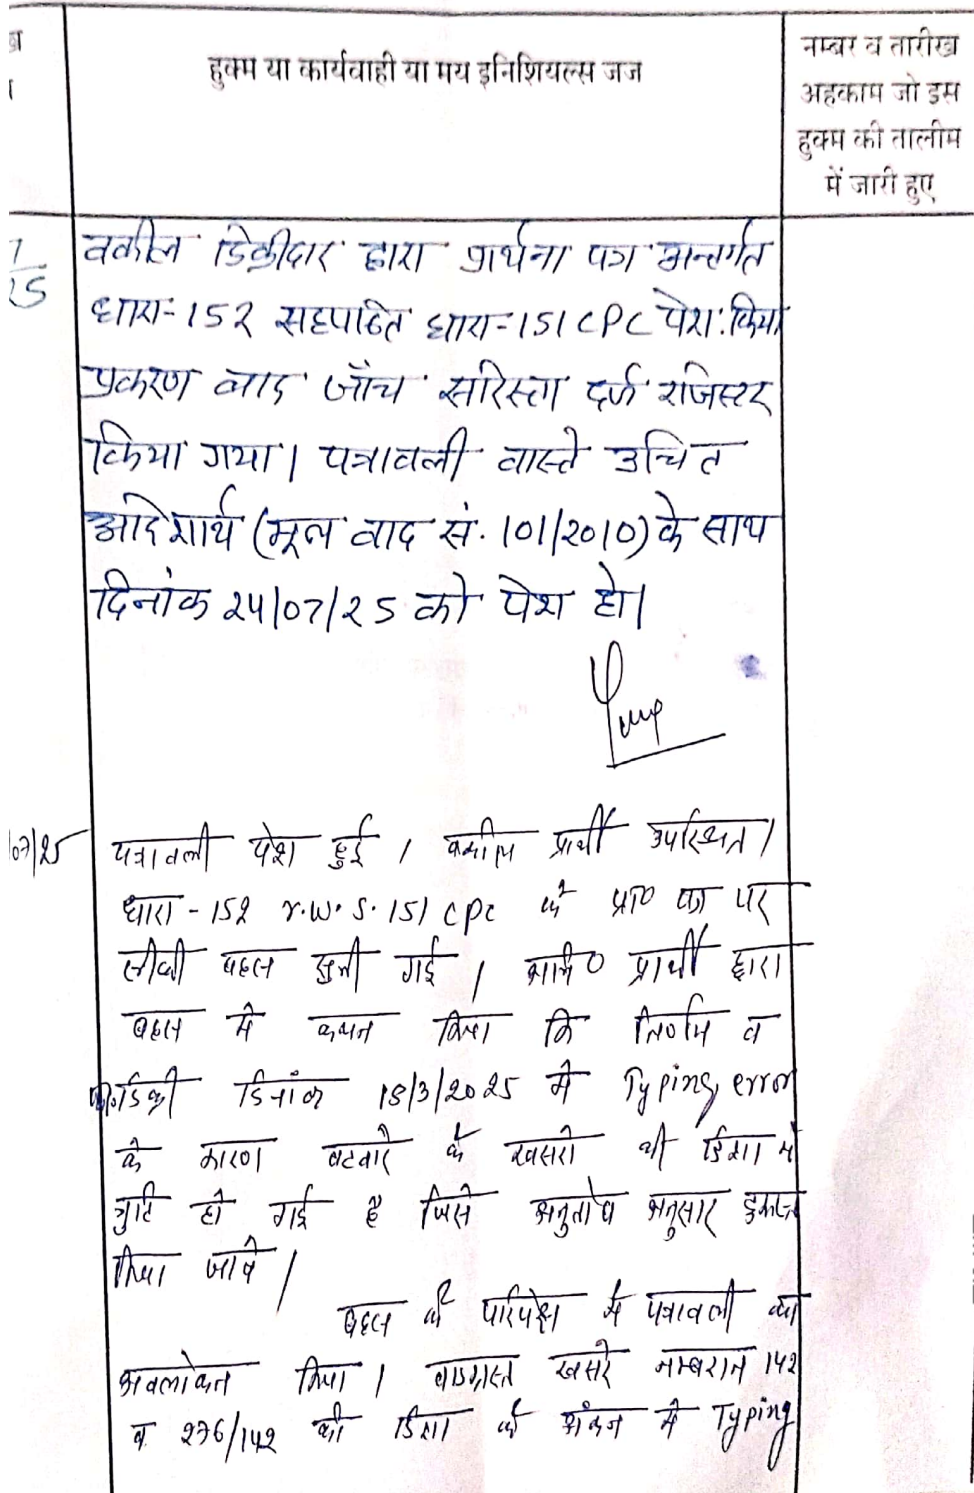 हुक्म या कार्यवाही या मय इनिशियल्स जज
नम्बर व तारीख
अहकाम जो इस
हुक्म की तालीम
में जारी हुए
वकील डिक्रीदार द्वारा प्रार्थना पत्र अन्तर्गत
धारा-152 सहपठित धारा-151 CPC पेश किया
प्रकरण बाद जाँच सरिस्ता दर्ज रजिस्टर
किया गया। पत्रावली वास्ते उचित
आदेशार्थ (मूल वाद सं. 101/2010) के साथ
दिनांक 24/07/25 को पेश हो।
07/25
पत्रावली पेश हुई । वकील प्रार्थी उपस्थित ।
धारा - 152 r.w. S. 151 CPC के प्रा० पत्र पर
बहस सुनी गई । प्रार्थी द्वारा
बहस में कथन किया कि निर्णय व
डिक्री दिनांक 18/3/2025 में Typing error
के कारण बटवारे के खसरो की दिशा में
त्रुटि हो गई है जिसे अनुतोष अनुसार दुरूस्त
किया जावे ।
बहस के परिपेक्ष में पत्रावली का
अवलोकन किया । वादग्रस्त खसरे नम्बरान 142
व 276/142 की दिशा के अंकन में Typing